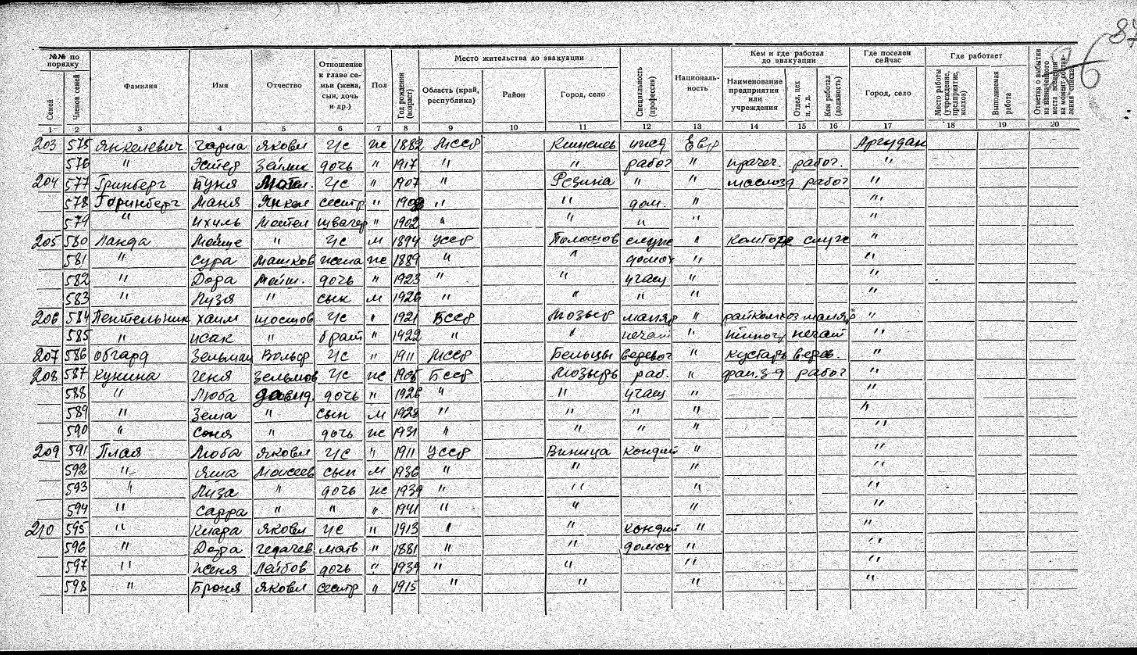 87
6
№№ по порядку Фамилия Имя Отчество Отношение к главе семьи (жена, сын, дочь и др.) Пол Год рождения (возраст) Место жительства до эвакуации Специальность (профессия) Национальность Кем и где работал до эвакуации Где поселен сейчас Где работает
Семей Членов семей Область (край, республика) Район Город, село Наименование предприятия или учреждения Отдел, цех и т. д. Кем работал (должность) Город, село Место работы (учреждение, предприятие, колхоз) Выполняемая работа
1 2 3 4 5 6 7 8 9 10 11 12 13 14 15 16 17 18 19 20
203 575 Янкелевич Чарна Яковл г/с же 1882 МССР Кишенев ижд Евр Аргудан
576 " Эстер дочь " 1917 " " работ " прачеч. работ. "
204 577 Гринберг Буня г/с " 1907 " Резина " " работ "
578 Горинберг Маня Янкел сестр " " " дом. " "
579 " Ихиль Мотел швагер " 1902 " " " " "
205 580 Ланда Мойше " г/с м 1894 УССР служ " служ "
581 " Сура Машков жена же 1889 " " домох " "
582 " Дора Мойш. дочь " 1923 " " учащ " "
583 " Лузя " сын м 1926 " " " " "
206 584 Пентельник Хаим г/с " 1921 БССР Мозырь маляр " маляр "
585 " Исак " брат " 1922 " " печат " печат "
207 586 Обгард Зельман Вольф г/с " 1911 МССР Бельцы веревоч " кустарь верев. "
208 587 Кунина Геня Зельмов г/с же БССР Мозырь раб. " работ "
588 " Люба Давид. дочь " 1926 " " учащ " "
589 " Зема " сын м 1928 " " " " "
590 " Соня " дочь же 1931 " " " " "
209 591 Плая Люба Яковл г/с " 1911 УССР Виница кондит " "
592 " Яша Моисеев сын м 1936 " " "
593 " Лиза " дочь же 1939 " " "
594 " Сарра " " " 1941 " " "
210 595 " Клара Яковл г/с " 1913 " " кондит " "
596 " Дора мать " 1881 " " домох " "
597 " Женя Лейбов дочь " 1939 " " " "
598 " Броня Яковл сестр " 1915 " " " "